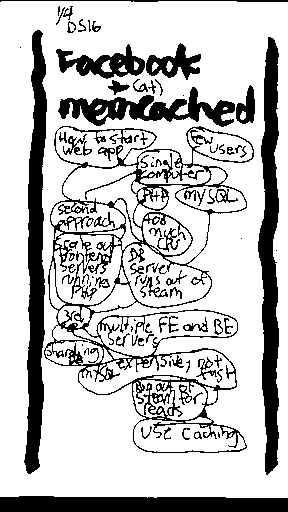 1/4
DS16
Facebook
+ (at)
memcached
How to start
web app
few
users
single
computer
PHP
MySQL
too
much
CPU
second
approach
scale out
frontend
servers
running
PHP
DB
server
runs out of
steam
3rd
multiple FE and BE
servers
sharding
MySQL expensive, not
fast
run out of
steam for
reads
USE caching